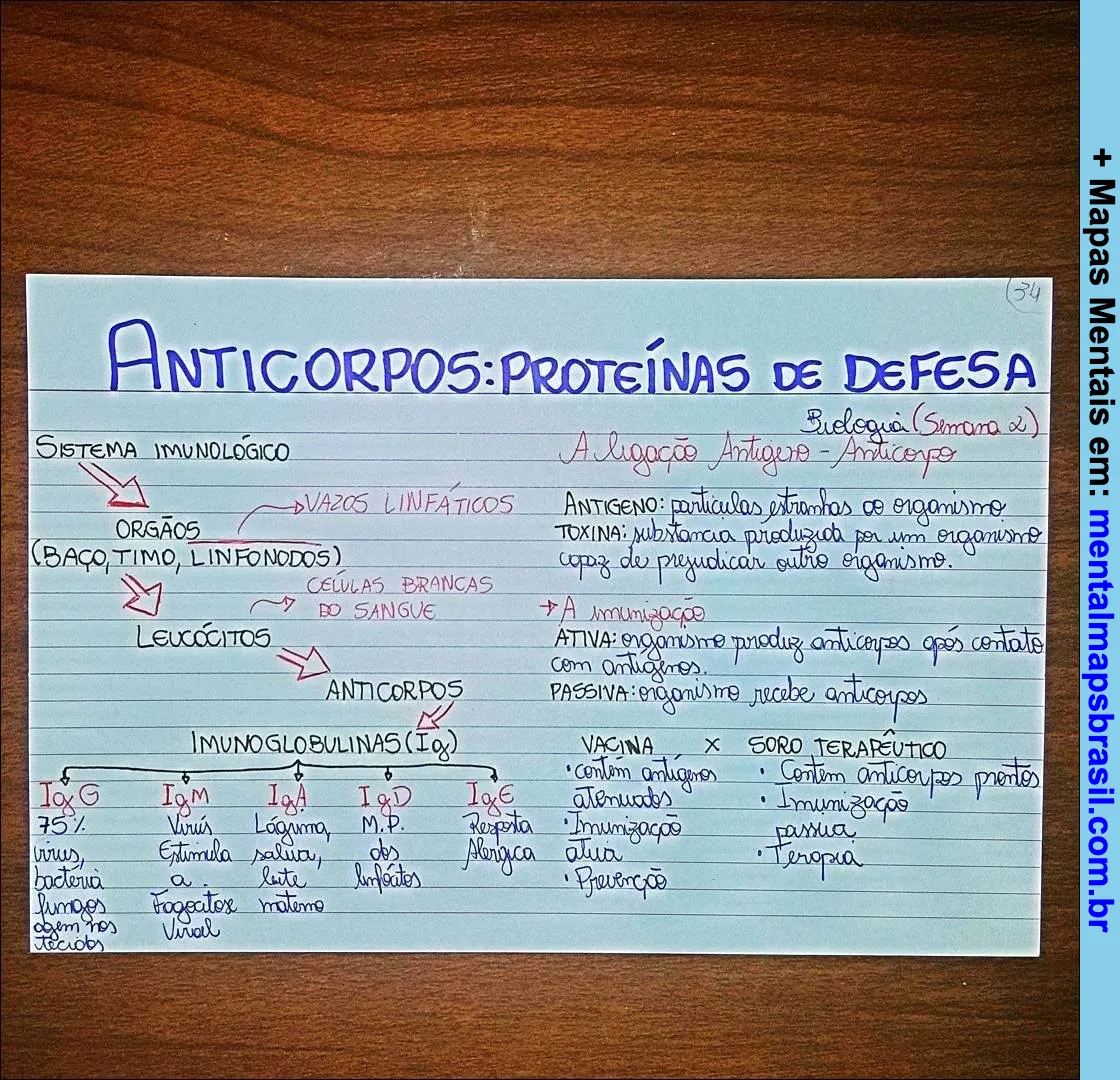 34
ANTICORPOS: PROTEÍNAS DE DEFESA
Biologia (Semana 2)
SISTEMA IMUNOLÓGICO
ORGÃOS
(BAÇO, TIMO, LINFONODOS)
VAZOS LINFÁTICOS
CÉLULAS BRANCAS
DO SANGUE
LEUCÓCITOS
ANTICORPOS
IMUNOGLOBULINAS (Ig)
IgG
75%
vírus,
bactéria
fungos
agem nos
tecidos
IgM
Virús
Estimula
a
Fagocitose
Viral
IgA
Lágrima,
saliva,
leite
materno
IgD
M.P.
dos
linfócitos
IgE
Resposta
Alergica
A ligação Antígeno - Anticorpo
ANTIGENO: partículas estranhas ao organismo
TOXINA: substância produzida por um organismo
capaz de prejudicar outro organismo.
A imunização
ATIVA: organismo produz anticorpos após contato
com antígenos.
PASSIVA: organismo recebe anticorpos
VACINA X SORO TERAPÊUTICO
• contém antígenos
atenuados
• Imunização
ativa
• Prevenção
• Contém anticorpos prontos
• Imunização
passiva
• Terapia
+ Mapas Mentais em: mentalmapsbrasil.com.br